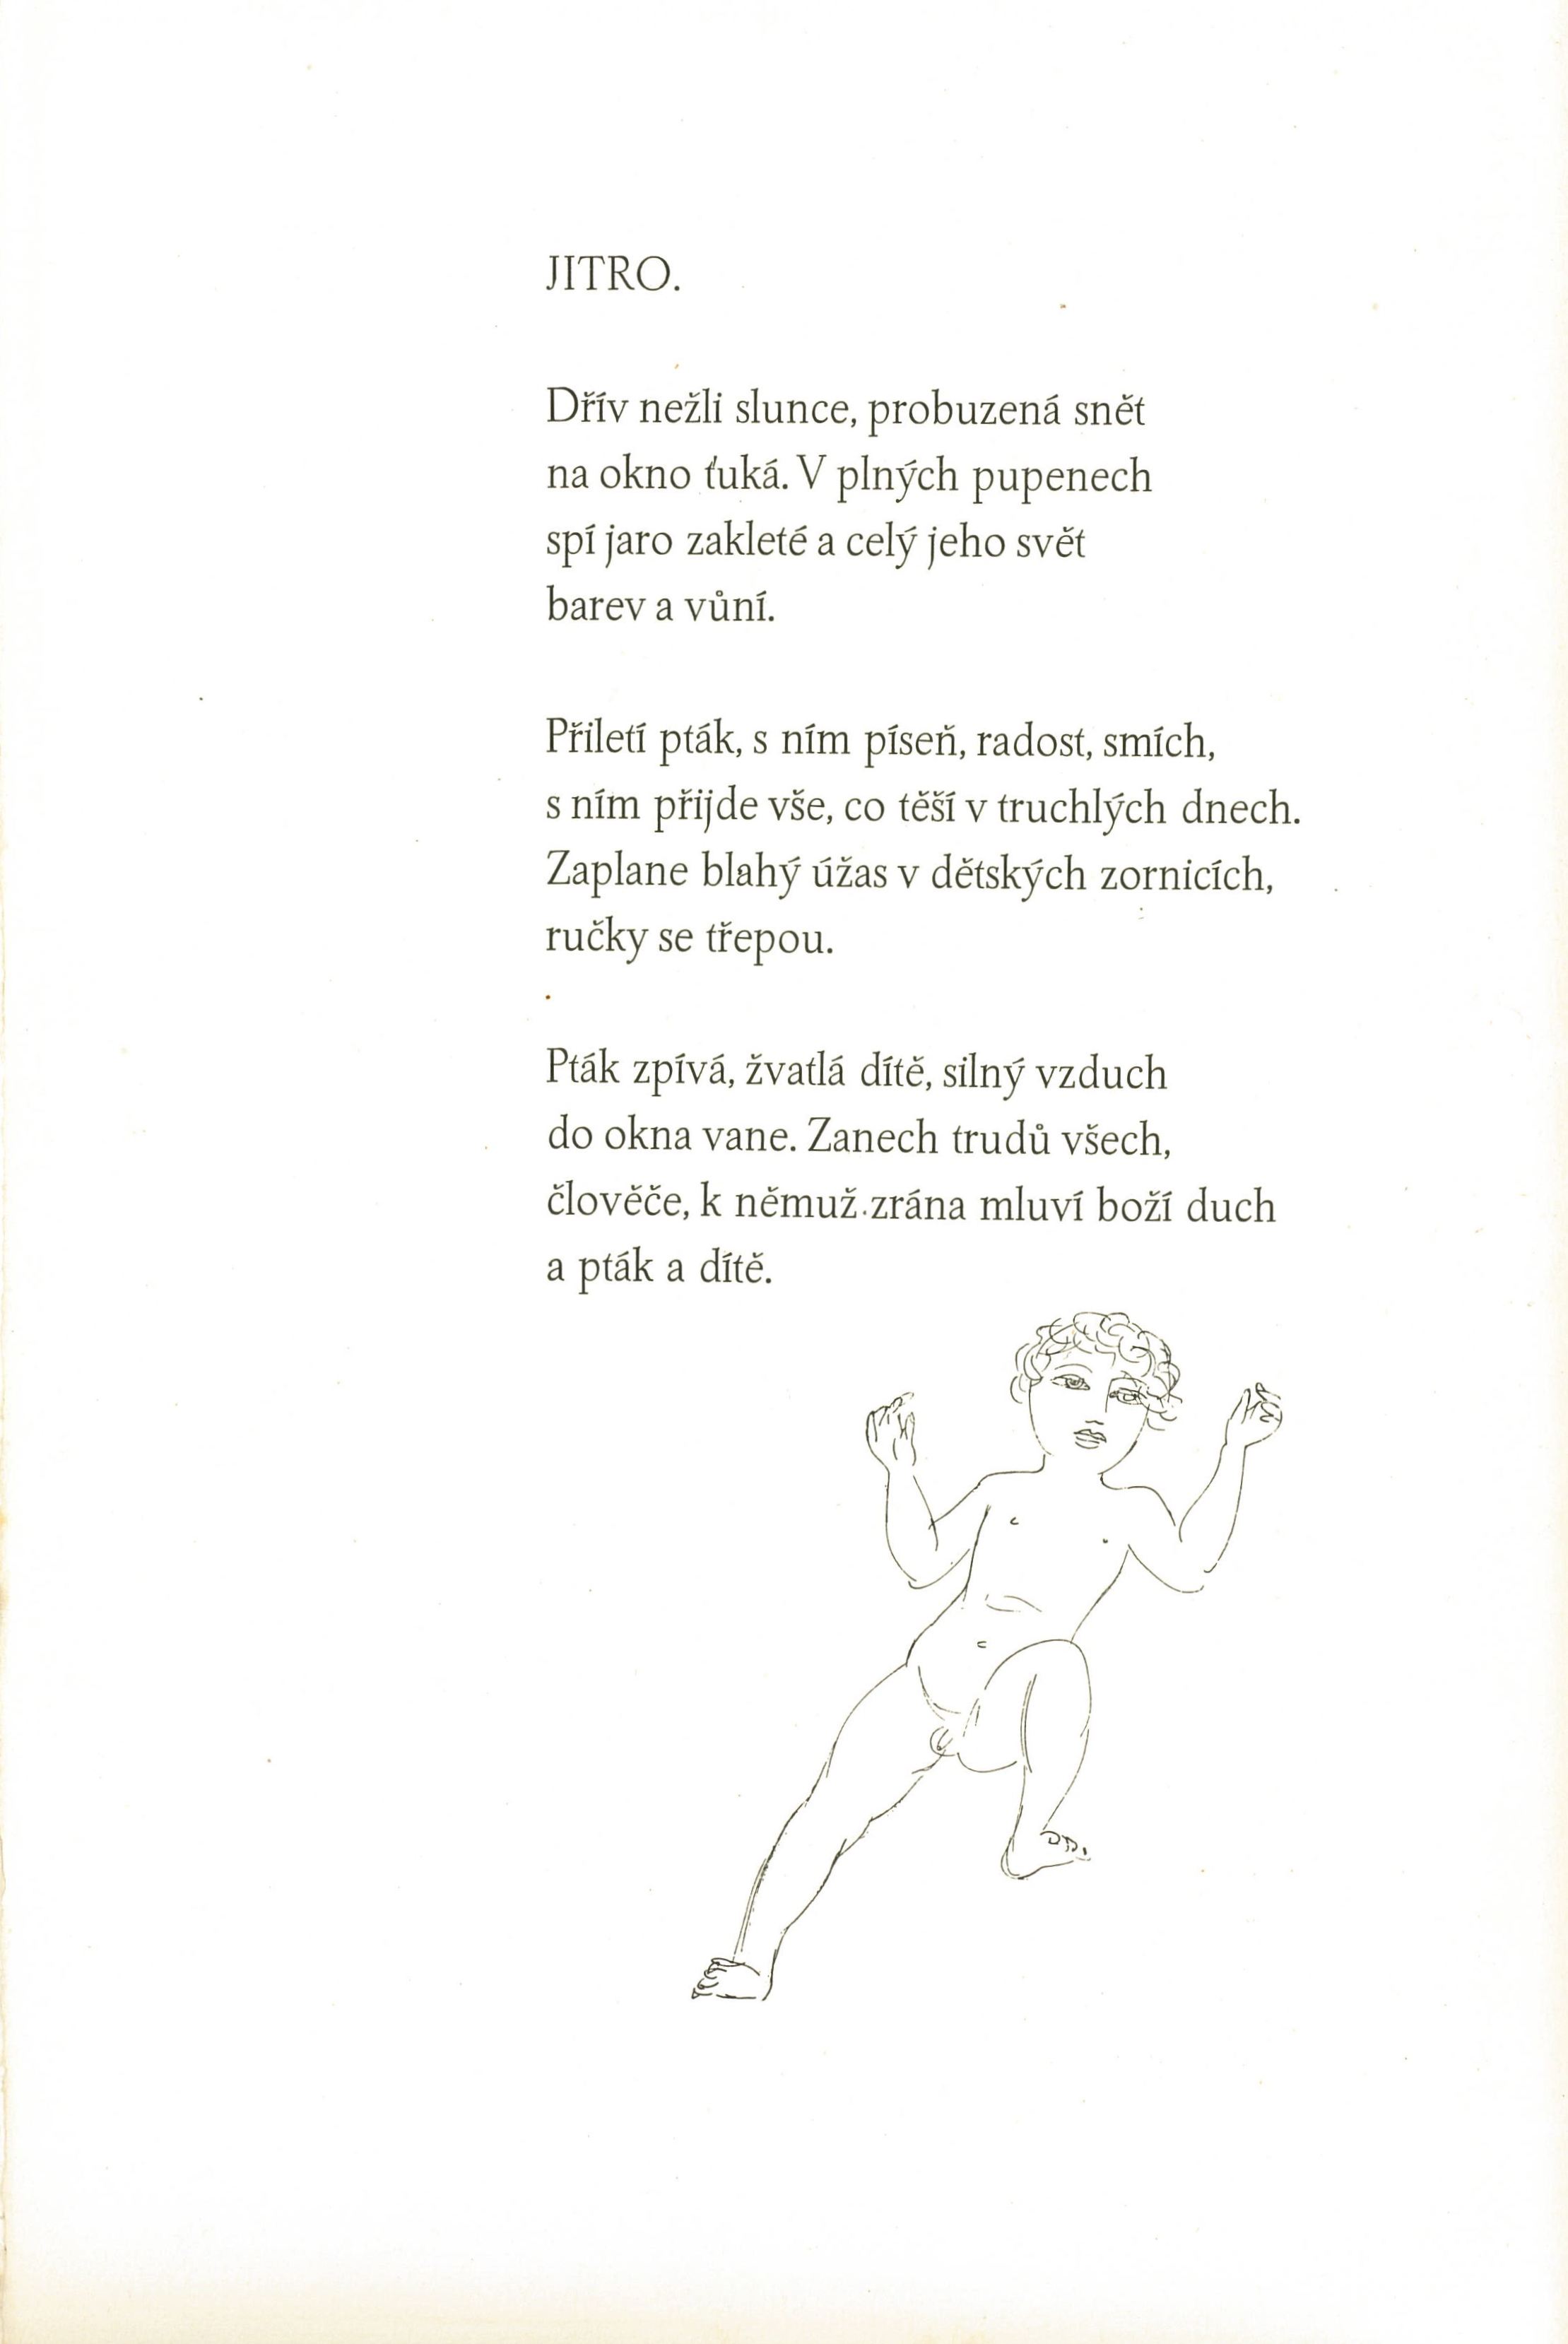 JITRO.
Dřív nežli slunce, probuzená snět
na okno ťuká. V plných pupenech
spí jaro zakleté a celý jeho svět
barev a vůní.
Přiletí pták, s ním píseň, radost, smích,
s ním přijde vše, co těší v truchlých dnech.
Zaplane blahý úžas v dětských zornicích,
ručky se třepou.
Pták zpívá, žvatlá dítě, silný vzduch
do okna vane. Zanech trudů všech,
člověče, k němuž zrána mluví boží duch
a pták a dítě.